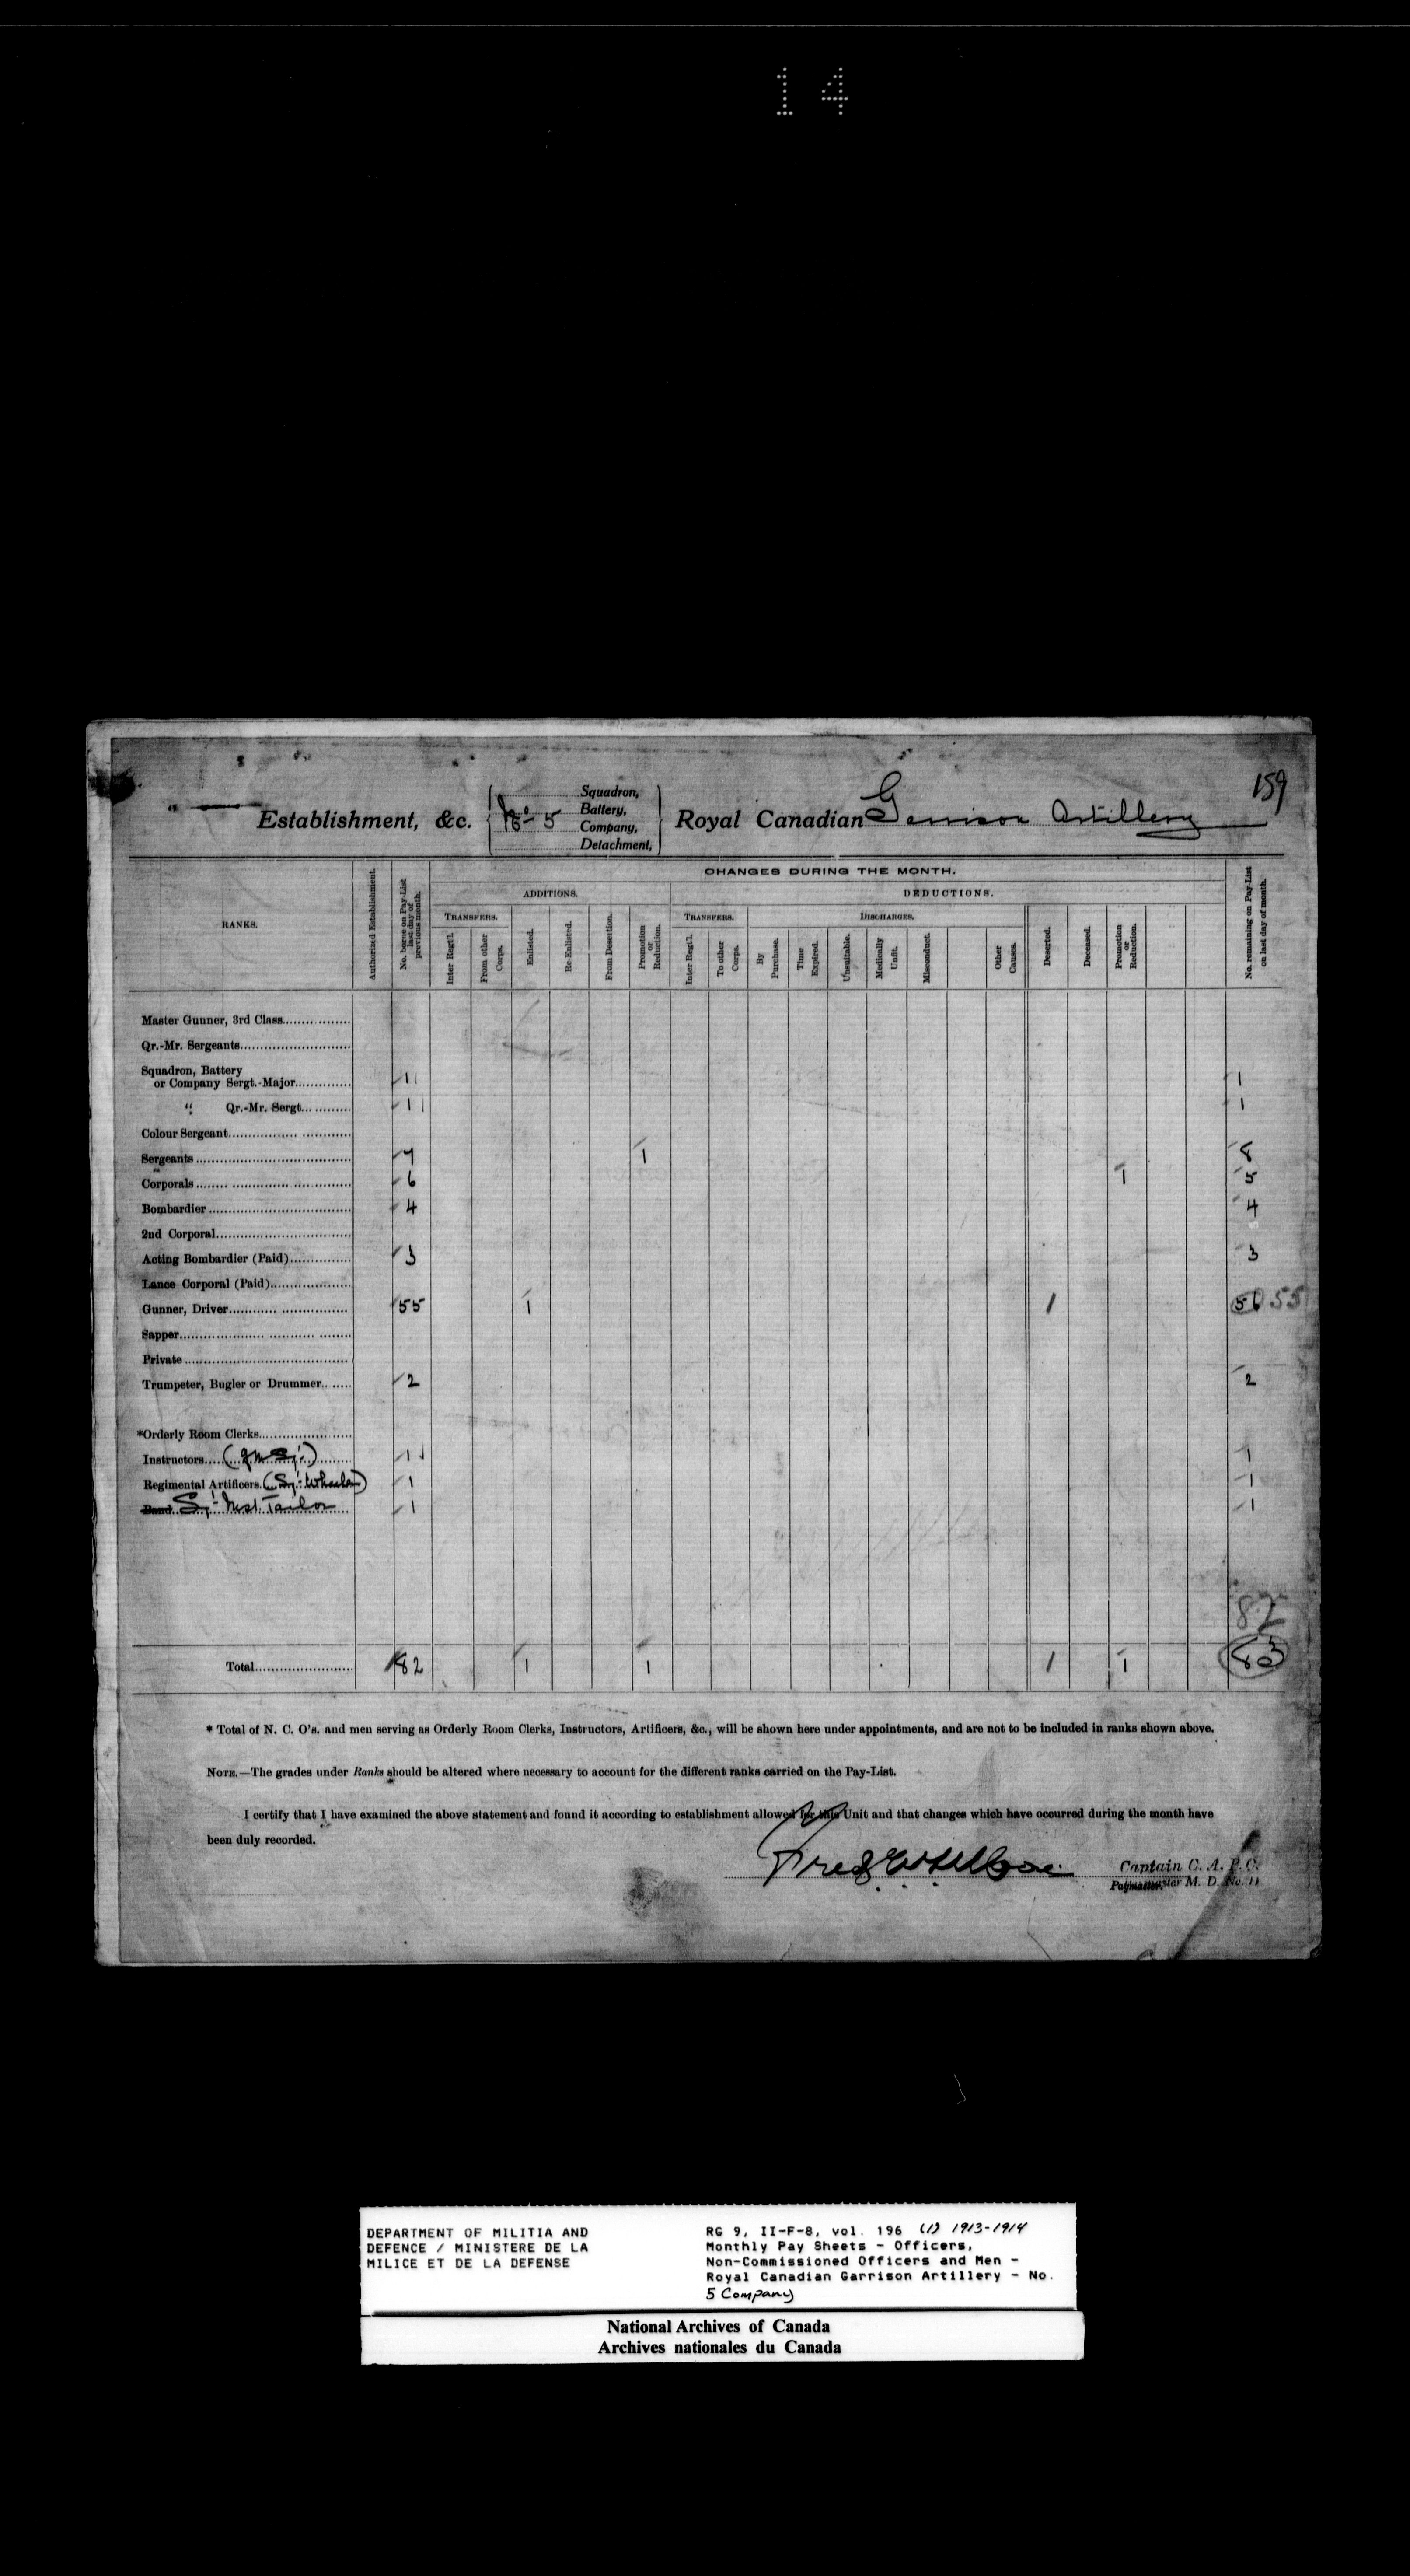 14
159
Establishment, &c. No 5 Squadron, Battery, Company, Detachment, Royal Canadian Garrison Artillery
RANKS.
Authorized Establishment.
No. borne on Pay-List last day of previous month.
CHANGES DURING THE MONTH.
ADDITIONS.
DEDUCTIONS.
TRANSFERS.
TRANSFERS.
DISCHARGES.
Inter Regt'l.
From other Corps.
Enlisted.
Re-Enlisted.
From Desertion.
Promotion or Reduction.
Inter Regt'l.
To other Corps.
By Purchase.
Time Expired.
Unsuitable.
Medically Unfit.
Misconduct.
Other Causes.
Deserted.
Deceased.
Promotion or Reduction.
No. remaining on Pay-List on last day of month.
Master Gunner, 3rd Class
Qr.-Mr. Sergeants
Squadron, Battery
or Company Sergt.-Major 1 1
" Qr.-Mr. Sergt. 1 1
Colour Sergeant
Sergeants 7 1 8
Corporals 6 1 5
Bombardier 4 4
2nd Corporal
Acting Bombardier (Paid) 3 3
Lance Corporal (Paid)
Gunner, Driver 55 1 1 56 55
Sapper
Private
Trumpeter, Bugler or Drummer 2 2
*Orderly Room Clerks
Instructors 1 1
Regimental Artificers (Sgt. Wheeler) 1 1
Band Sgt. Mast. Tailor 1 1
82
Total 82 1 1 1 1 83
* Total of N. C. O's. and men serving as Orderly Room Clerks, Instructors, Artificers, &c., will be shown here under appointments, and are not to be included in ranks shown above.
NOTE.—The grades under Ranks should be altered where necessary to account for the different ranks carried on the Pay-List.
I certify that I have examined the above statement and found it according to establishment allowed for this Unit and that changes which have occurred during the month have
been duly recorded.
Captain C. A. P. C.
Paymaster M. D. No. 11
DEPARTMENT OF MILITIA AND
DEFENCE / MINISTERE DE LA
MILICE ET DE LA DEFENSE
RG 9, II-F-8, vol. 196 (1) 1913-1914
Monthly Pay Sheets - Officers,
Non-Commissioned Officers and Men -
Royal Canadian Garrison Artillery - No.
5 Company
National Archives of Canada
Archives nationales du Canada